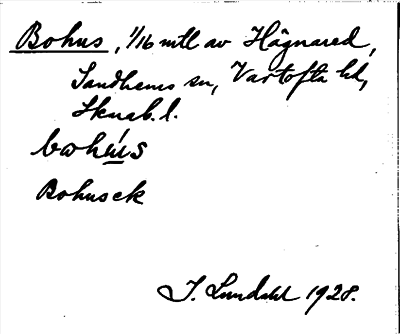 Bohus, 1/16 mtl av Hägnared,
Sandhems sn, Vartofta hd,
Skarab. l.
bωhú̲s
Bohusek
I. Lundahl 1928.